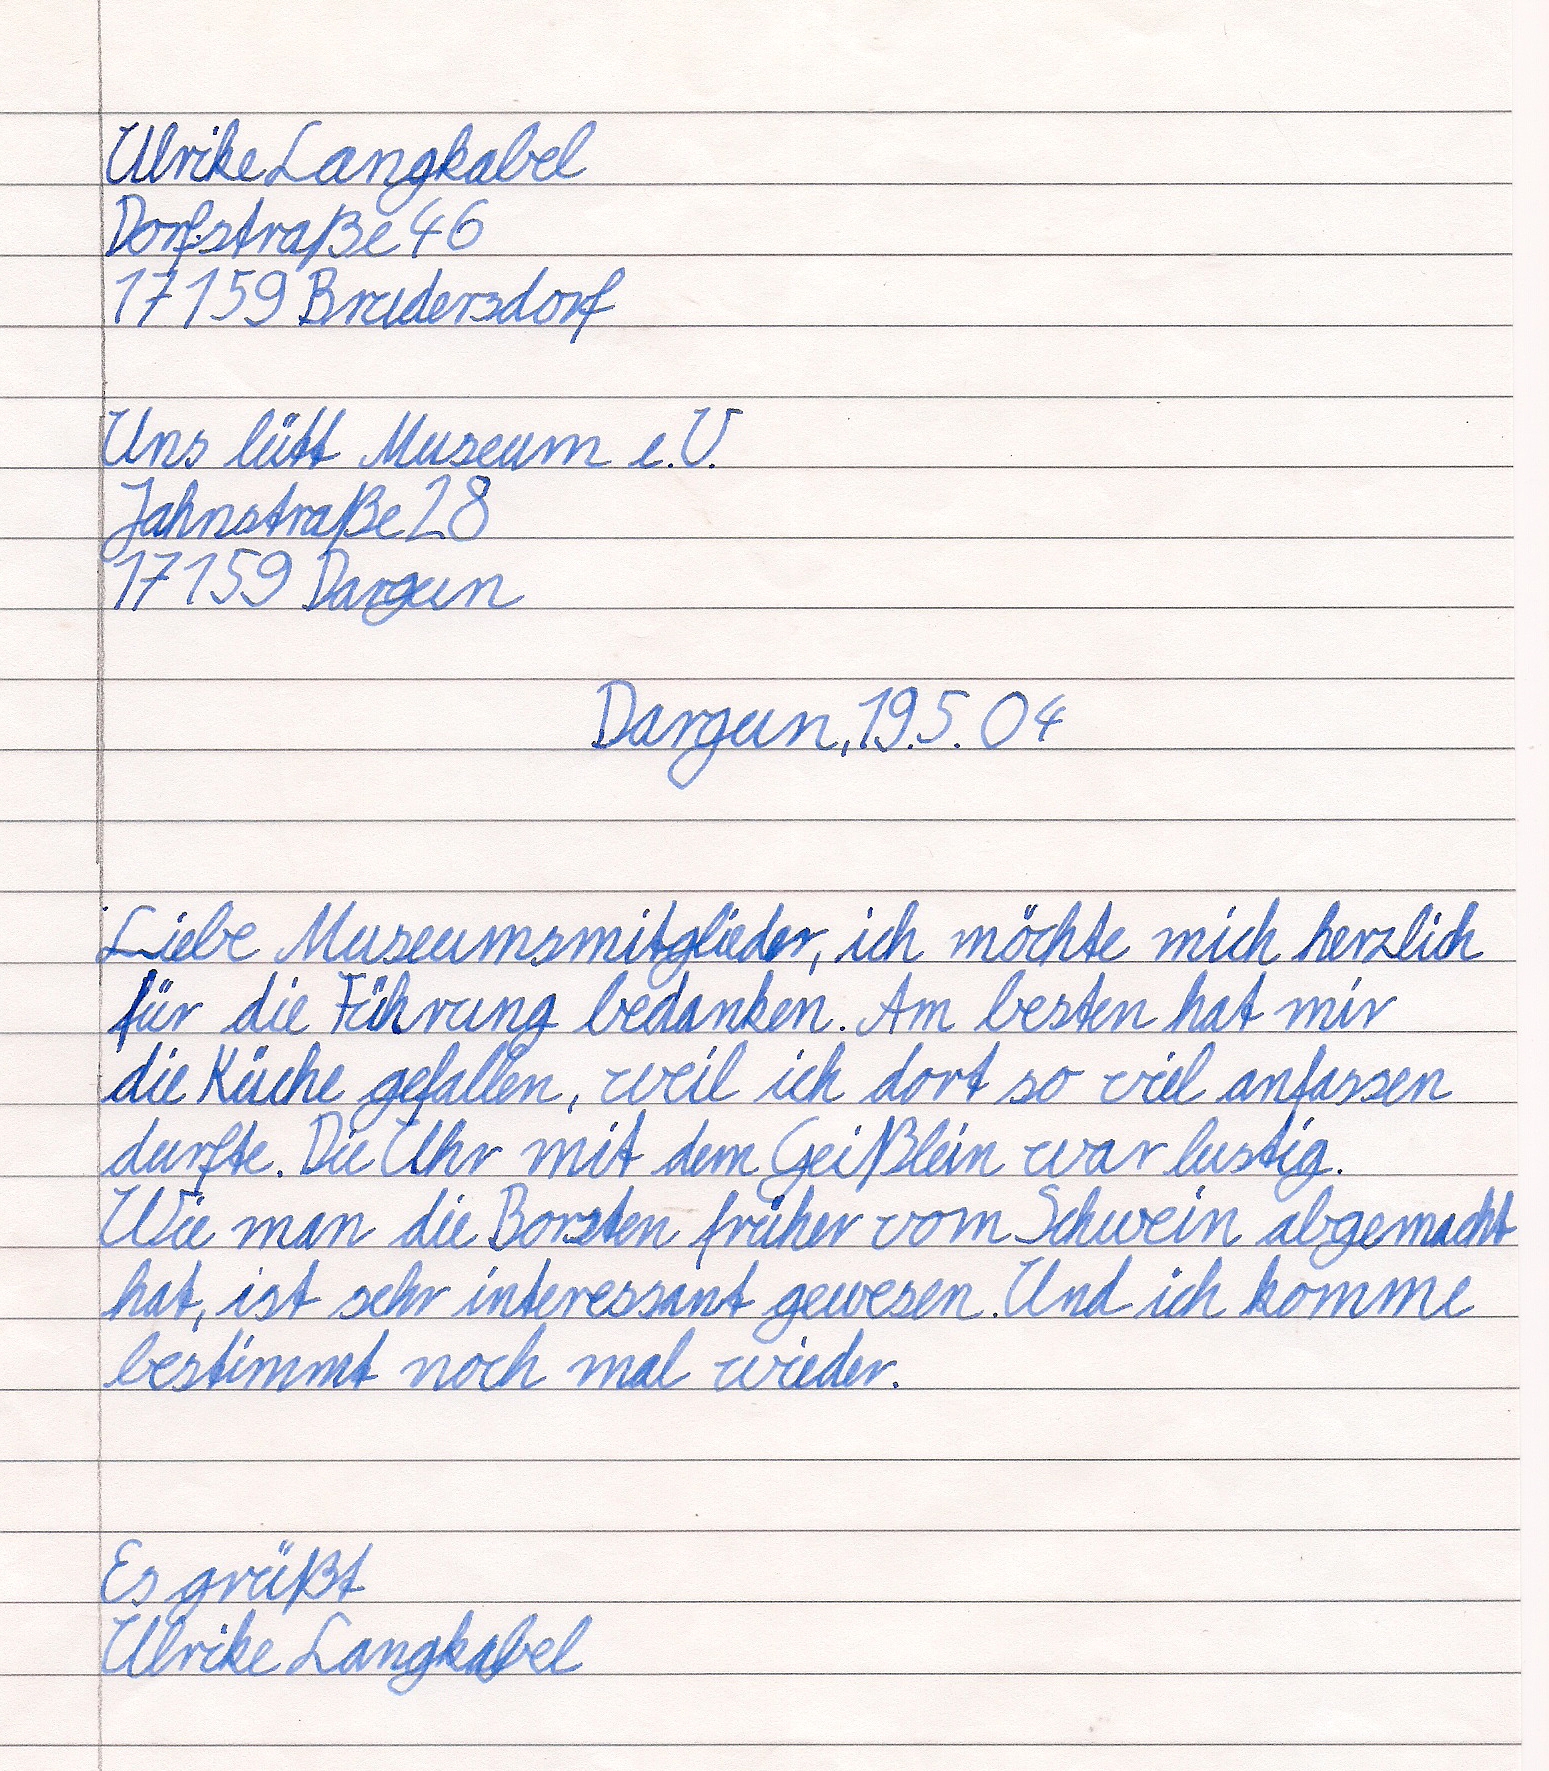 Ulrike Langkabel
Dorfstraße 46
17159 Brudersdorf
Uns lütt Museum e.V.
Jahnstraße 28
17159 Dargun
Dargun, 19.5.04
Liebe Museumsmitglieder, ich möchte mich herzlich
für die Führung bedanken. Am besten hat mir
die Küche gefallen, weil ich dort so viel anfassen
durfte. Die Uhr mit dem Geißlein war lustig.
Wie man die Borsten früher vom Schwein abgemacht
hat, ist sehr interessant gewesen. Und ich komme
bestimmt noch mal wieder.
Es grüßt
Ulrike Langkabel